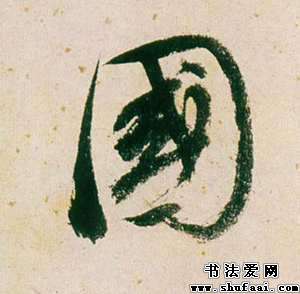 國
书法爱网
www.shufaai.com